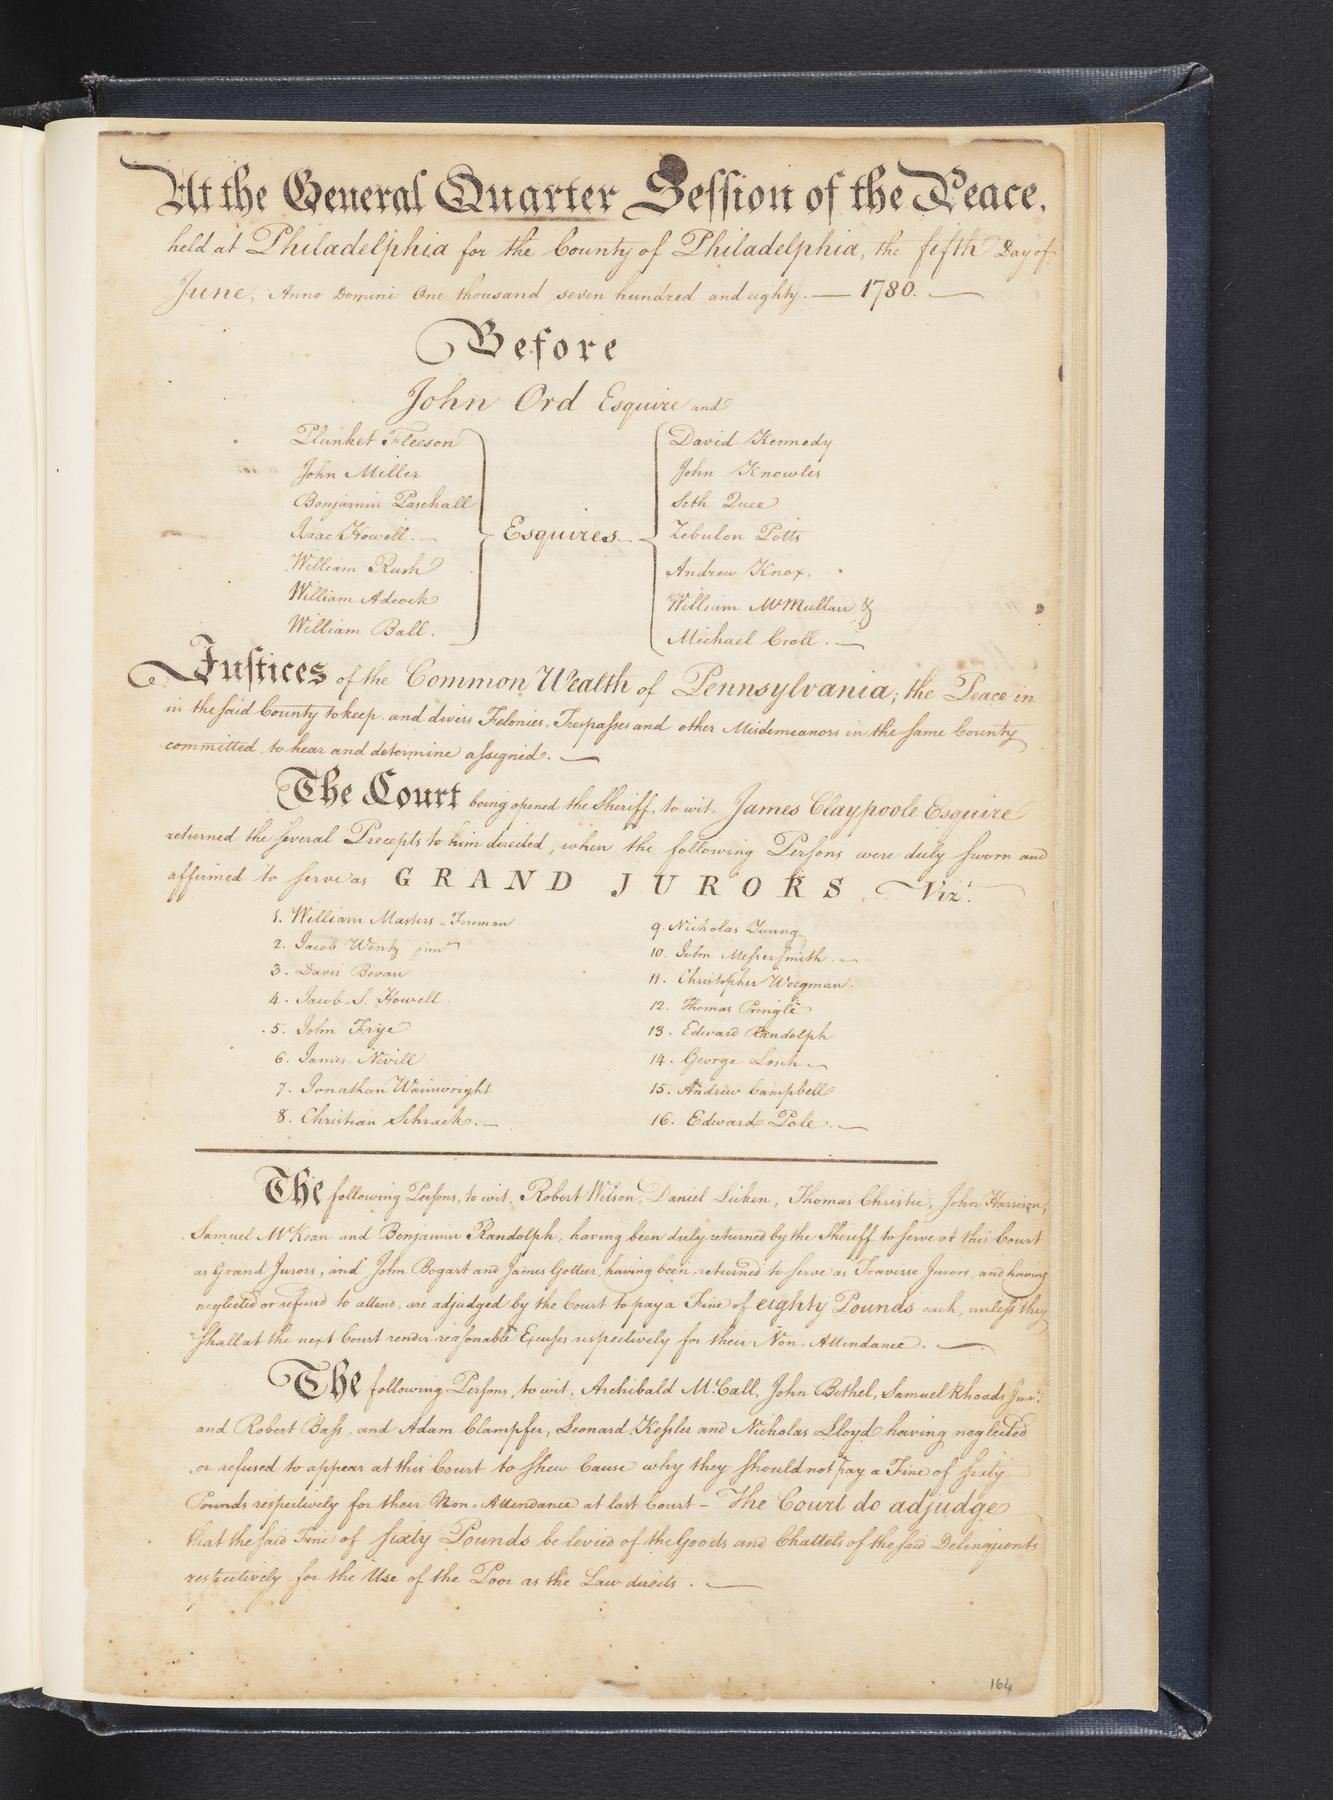 At the General Quarter Session of the Peace,
held at Philadelphia for the County of Philadelphia, the fifth Day of
June, Anno Domini One thousand seven hundred and eighty. — 1780. —
Before
John Ord Esquire and
Plunket Fleeson
John Miller
Benjamin Paschall
Isaac Howell. —
William Rush
William Adcock
William Ball.
Esquires
David Kennedy
John Knowles
Seth Quee
Zebulon Potts
Andrew Knox,
William McMullan &
Michael Croll. —
Justices of the Common Wealth of Pennsylvania; the Peace in
in the said County to keep and divers Felonies, Trespasses and other Misdemeanors in the same County
committed, to hear and determine assigned. —
The Court being opened the Sheriff, to wit, James Claypoole Esquire
returned the several Precepts to him directed, when the following Persons were duly sworn and
affirmed to serve as GRAND JURORS, Vizt.
1. William Masters - Foreman
2. Jacob Wentz junr
3. Davis Bevan
4. Jacob S. Howell
5. John Frye
6. James Nevill
7. Jonathan Wainwright
8. Christian Schrack. —
9. Nicholas Young
10. John Messersmith. —
11. Christopher Weegman.
12. Thomas Pringle
13. Edward Randolph
14. George Losch —
15. Andrew Campbell
16. Edward Pole. —
The following Persons, to wit, Robert Wilson, Daniel Suken, Thomas Christie, John Harrison,
Samuel McKean and Benjamin Randolph, having been duly returned by the Sheriff to serve at this Court
as Grand Jurors, and John Bogart and James Gottier, having been returned to serve as Traverse Jurors, and having
neglected or refused to attend, are adjudged by the Court to pay a Fine of eighty Pounds each, unless they
shall at the next Court render reasonable Excuses respectively for their Non-Attendance. —
The following Persons, to wit, Archibald McCall, John Bethel, Samuel Rhoads Junr.
and Robert Bass, and Adam Clampfer, Leonard Kessler and Nicholas Lloyd having neglected
or refused to appear at this Court to shew Cause why they should not pay a Fine of sixty
Pounds respectively for their Non-Attendance at last Court - The Court do adjudge
that the said Fine of sixty Pounds be levied of the Goods and Chattels of the said Delinquents
respectively for the Use of the Poor as the Law directs. —
164